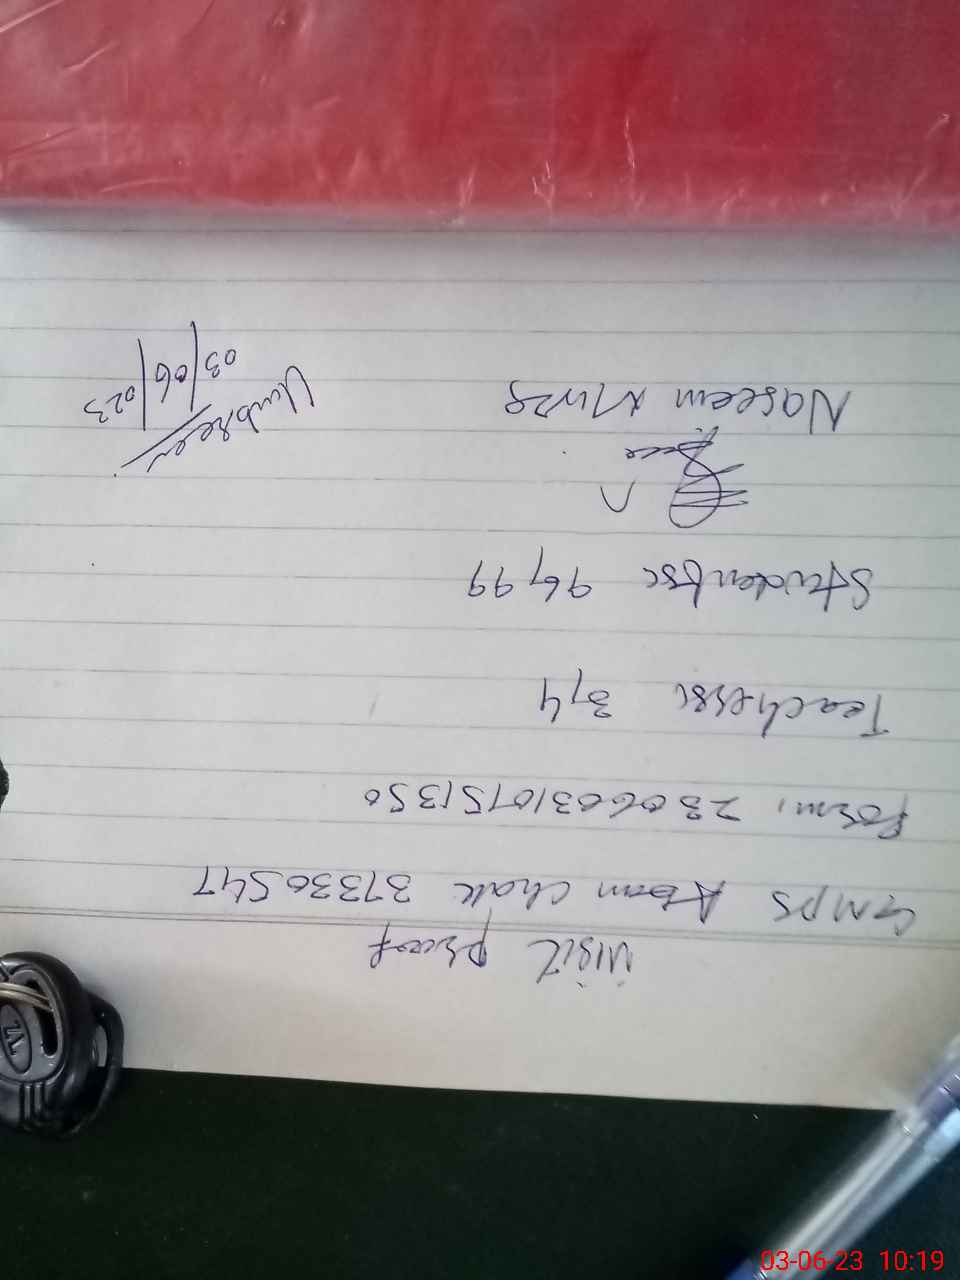 Visit proof
GMPS Adam Chak 37330547
Form, 2306031051350
Teachers: 3,4
Students: 96,99
Naseem
Umbreen
03/06/023
03-06-23 10:19